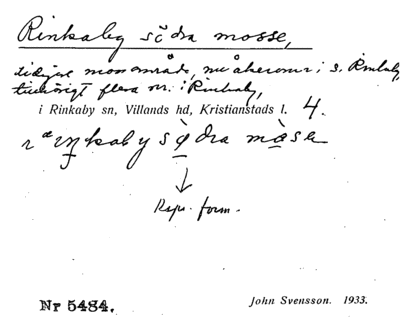 Rinkaby södra mosse,
tidigare mossområde, nu åkerområde i S. Rinkaby,
tillhörigt flera nr. i Rinkaby,
i Rinkaby sn, Villands hd, Kristianstads l. 4.
södra
↓
Rspr. form.
Nr 5484. John Svensson. 1933.